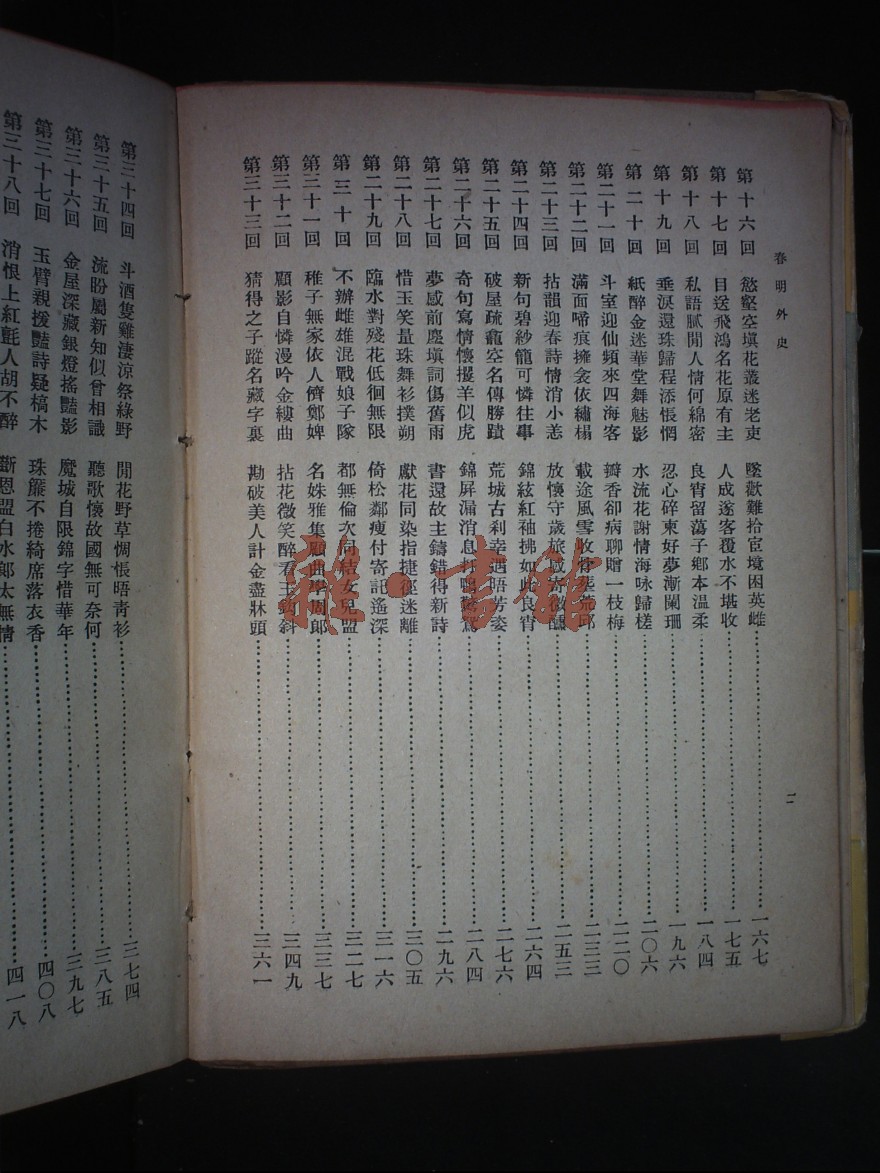 春明外史
第十六回 慾壑空塡花叢迷老吏 墜歡難拾宦境困英雌 一六七
第十七回 目送飛鴻名花原有主 人成逐客覆水不堪收 一七五
第十八回 私語膩聞人情何綿密 良宵留蕩子鄉本溫柔 一八四
第十九回 垂淚還珠歸程添悵惘 忍心碎柬好夢漸闌珊 一九六
第二十回 紙醉金迷華堂舞魅影 水流花謝情海咏歸槎 二〇六
第二十一回 斗室迎仙頻來四海客 瓣香卻病聊贈一枝梅 二二〇
第二十二回 滿面啼痕擁衾依繡榻 載途風雪收骨葬荒邱 二三三
第二十三回 拈韻迎春詩情消小恙 放懷守歲旅感寄微醺 二五三
第二十四回 新句碧紗籠可憐往事 錦絃紅袖拂如此良宵 二六四
第二十五回 破屋疏龕空名傳勝蹟 荒城古刹幸遇晤芳姿 二七六
第二十六回 奇句寫情懷攫羊似虎 錦屏漏消息打鴨驚鴛 二八四
第二十七回 夢感前塵塡詞傷舊雨 書還故主鑄錯得新詩 二九六
第二十八回 惜玉笑量珠舞衫撲朔 獻花同染指捷徑迷離 三〇五
第二十九回 臨水對殘花低徊無限 倚松鄰瘦付寄託遙深 三一六
第三十回 不辦雌雄混戰娘子隊 都無倫次同結女兒盟 三二七
第三十一回 稚子無家依人儕鄭婢 名姝雅集顧曲學周郞 三三七
第三十二回 顧影自憐漫吟金縷曲 拈花微笑醉看玉鈎斜 三四九
第三十三回 猜得之子蹤名藏字裏 勘破美人計金盡牀頭 三六一
二
第三十四回 斗酒隻雞淒涼祭綠野 閒花野草惆悵晤靑衫 三七四
第三十五回 流盼屬新知似曾相識 聽歌懷故國無可奈何 三八五
第三十六回 金屋深藏銀燈搖豔影 魔城自限錦字惜華年 三九七
第三十七回 玉臂親援豔詩疑槁木 珠簾不捲綺席落衣香 四〇八
第三十八回 消恨上紅氈人胡不醉 斷恩盟白水郞太無情 四一八
雜·書館